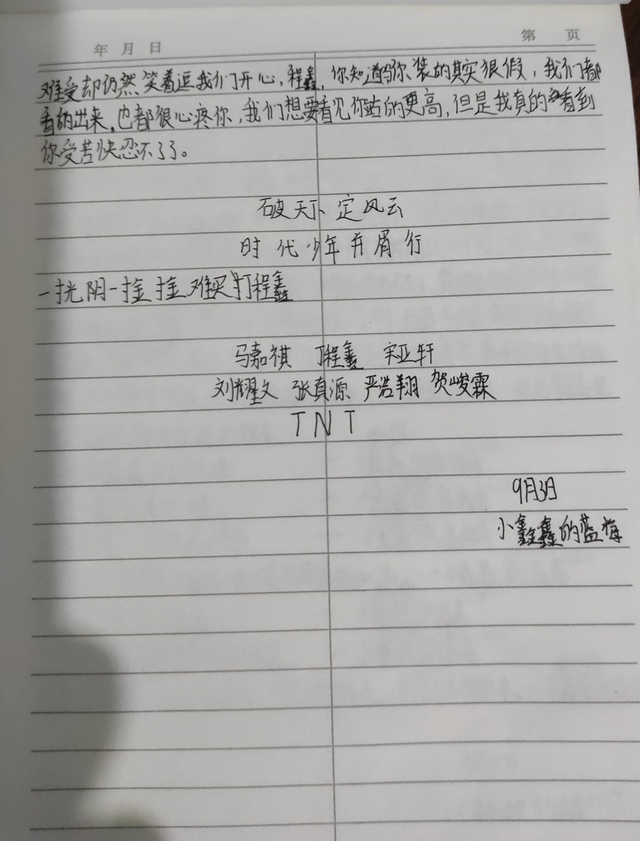 年 月 日 第 页
难受却仍然笑着逗我们开心，程鑫，你知道吗你装的其实很假，我们都
看的出来，也都很心疼你，我们想要看见你站的更高，但是我真的看到
你受苦快忍不了了。
破天下 定风云
时代少年并肩行
一扌光阴一扌金 扌金难买丁程鑫
马嘉祺 丁程鑫 宋亚轩
刘耀文 张真源 严浩翔 贺峻霖
TNT
9月3日
小鑫鑫的蓝莓